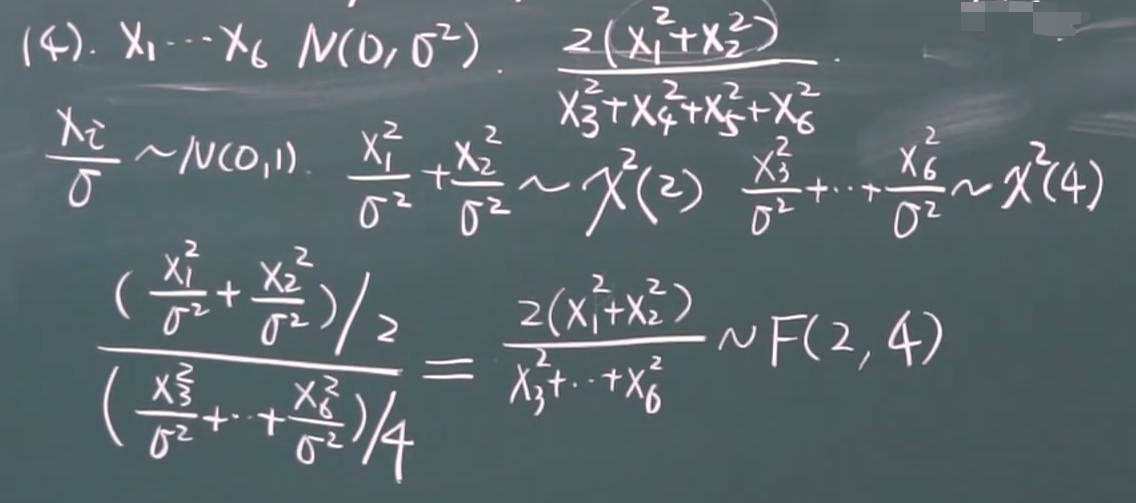 (4). X₁⋯X₆ N(0, σ²). 2(X₁²+X₂²) / (X₃²+X₄²+X₅²+X₆²).
Xᵢ/σ ~ N(0,1). X₁²/σ² + X₂²/σ² ~ χ²(2) X₃²/σ² +⋯+ X₆²/σ² ~ χ²(4)
((X₁²/σ² + X₂²/σ²)/2) / ((X₃²/σ² +⋯+ X₆²/σ²)/4) = 2(X₁²+X₂²) / (X₃²+⋯+X₆²) ~ F(2, 4)